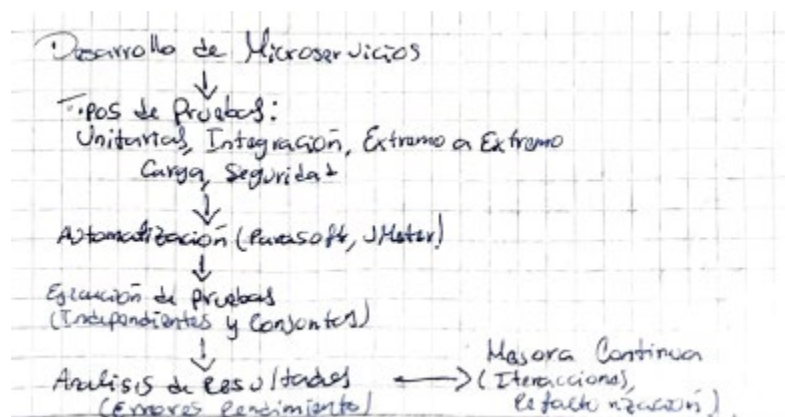 Desarrollo de Microservicios
↓
Tipos de Pruebas:
Unitarias, Integración, Extremo a Extremo
Carga, Seguridad
↓
Automatización (Parasoft, JMeter)
↓
Ejecución de pruebas
(Independientes y Conjuntas)
↓
Analisis de Resultados ⟷ Mejora Continua
(Errores Rendimiento) (Iteracciones,
Refactorización)